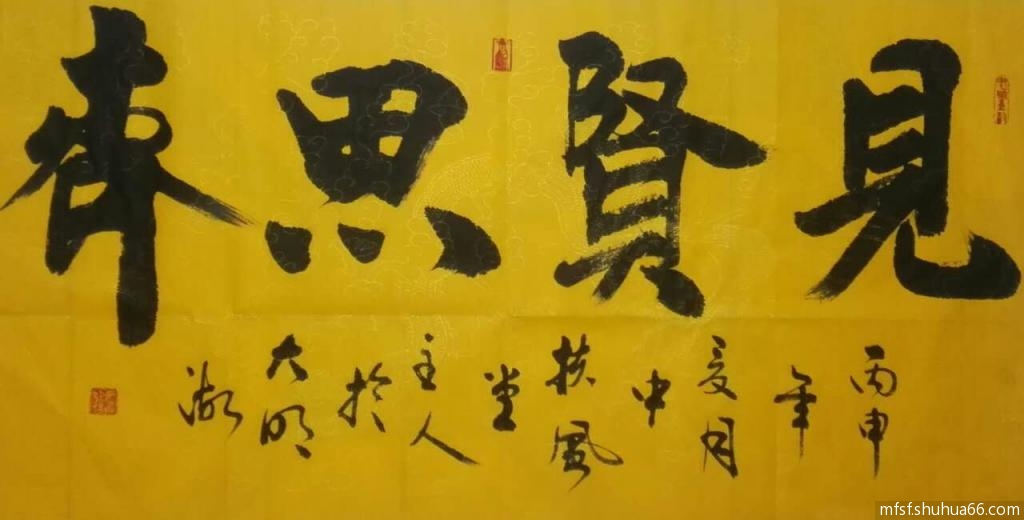 見賢思齊
丙申年夏月中扶風堂主人於大明湖
mfsf.shuhua66.com